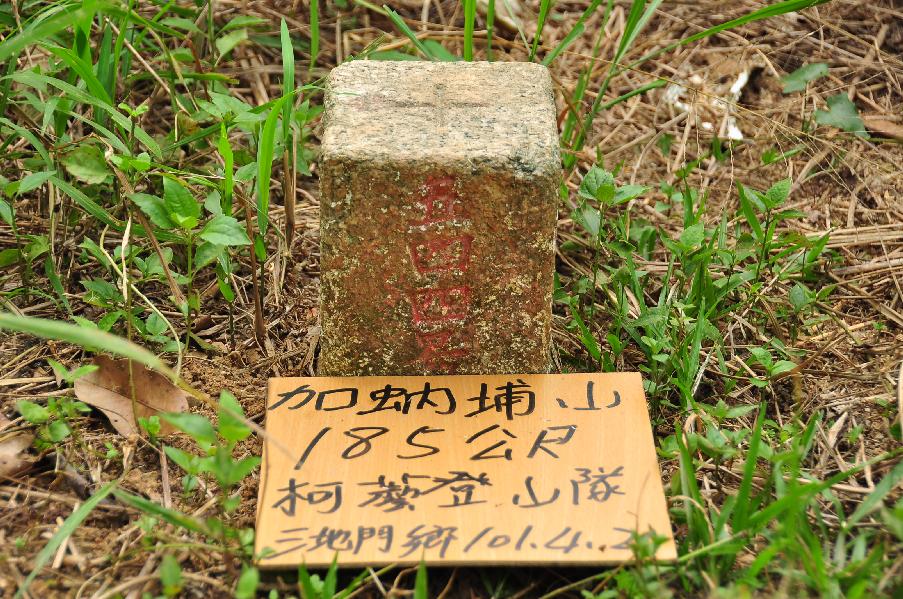 五四四
加蚋埔山
185公尺
柯蔡登山隊
三地門鄉 101.4.2